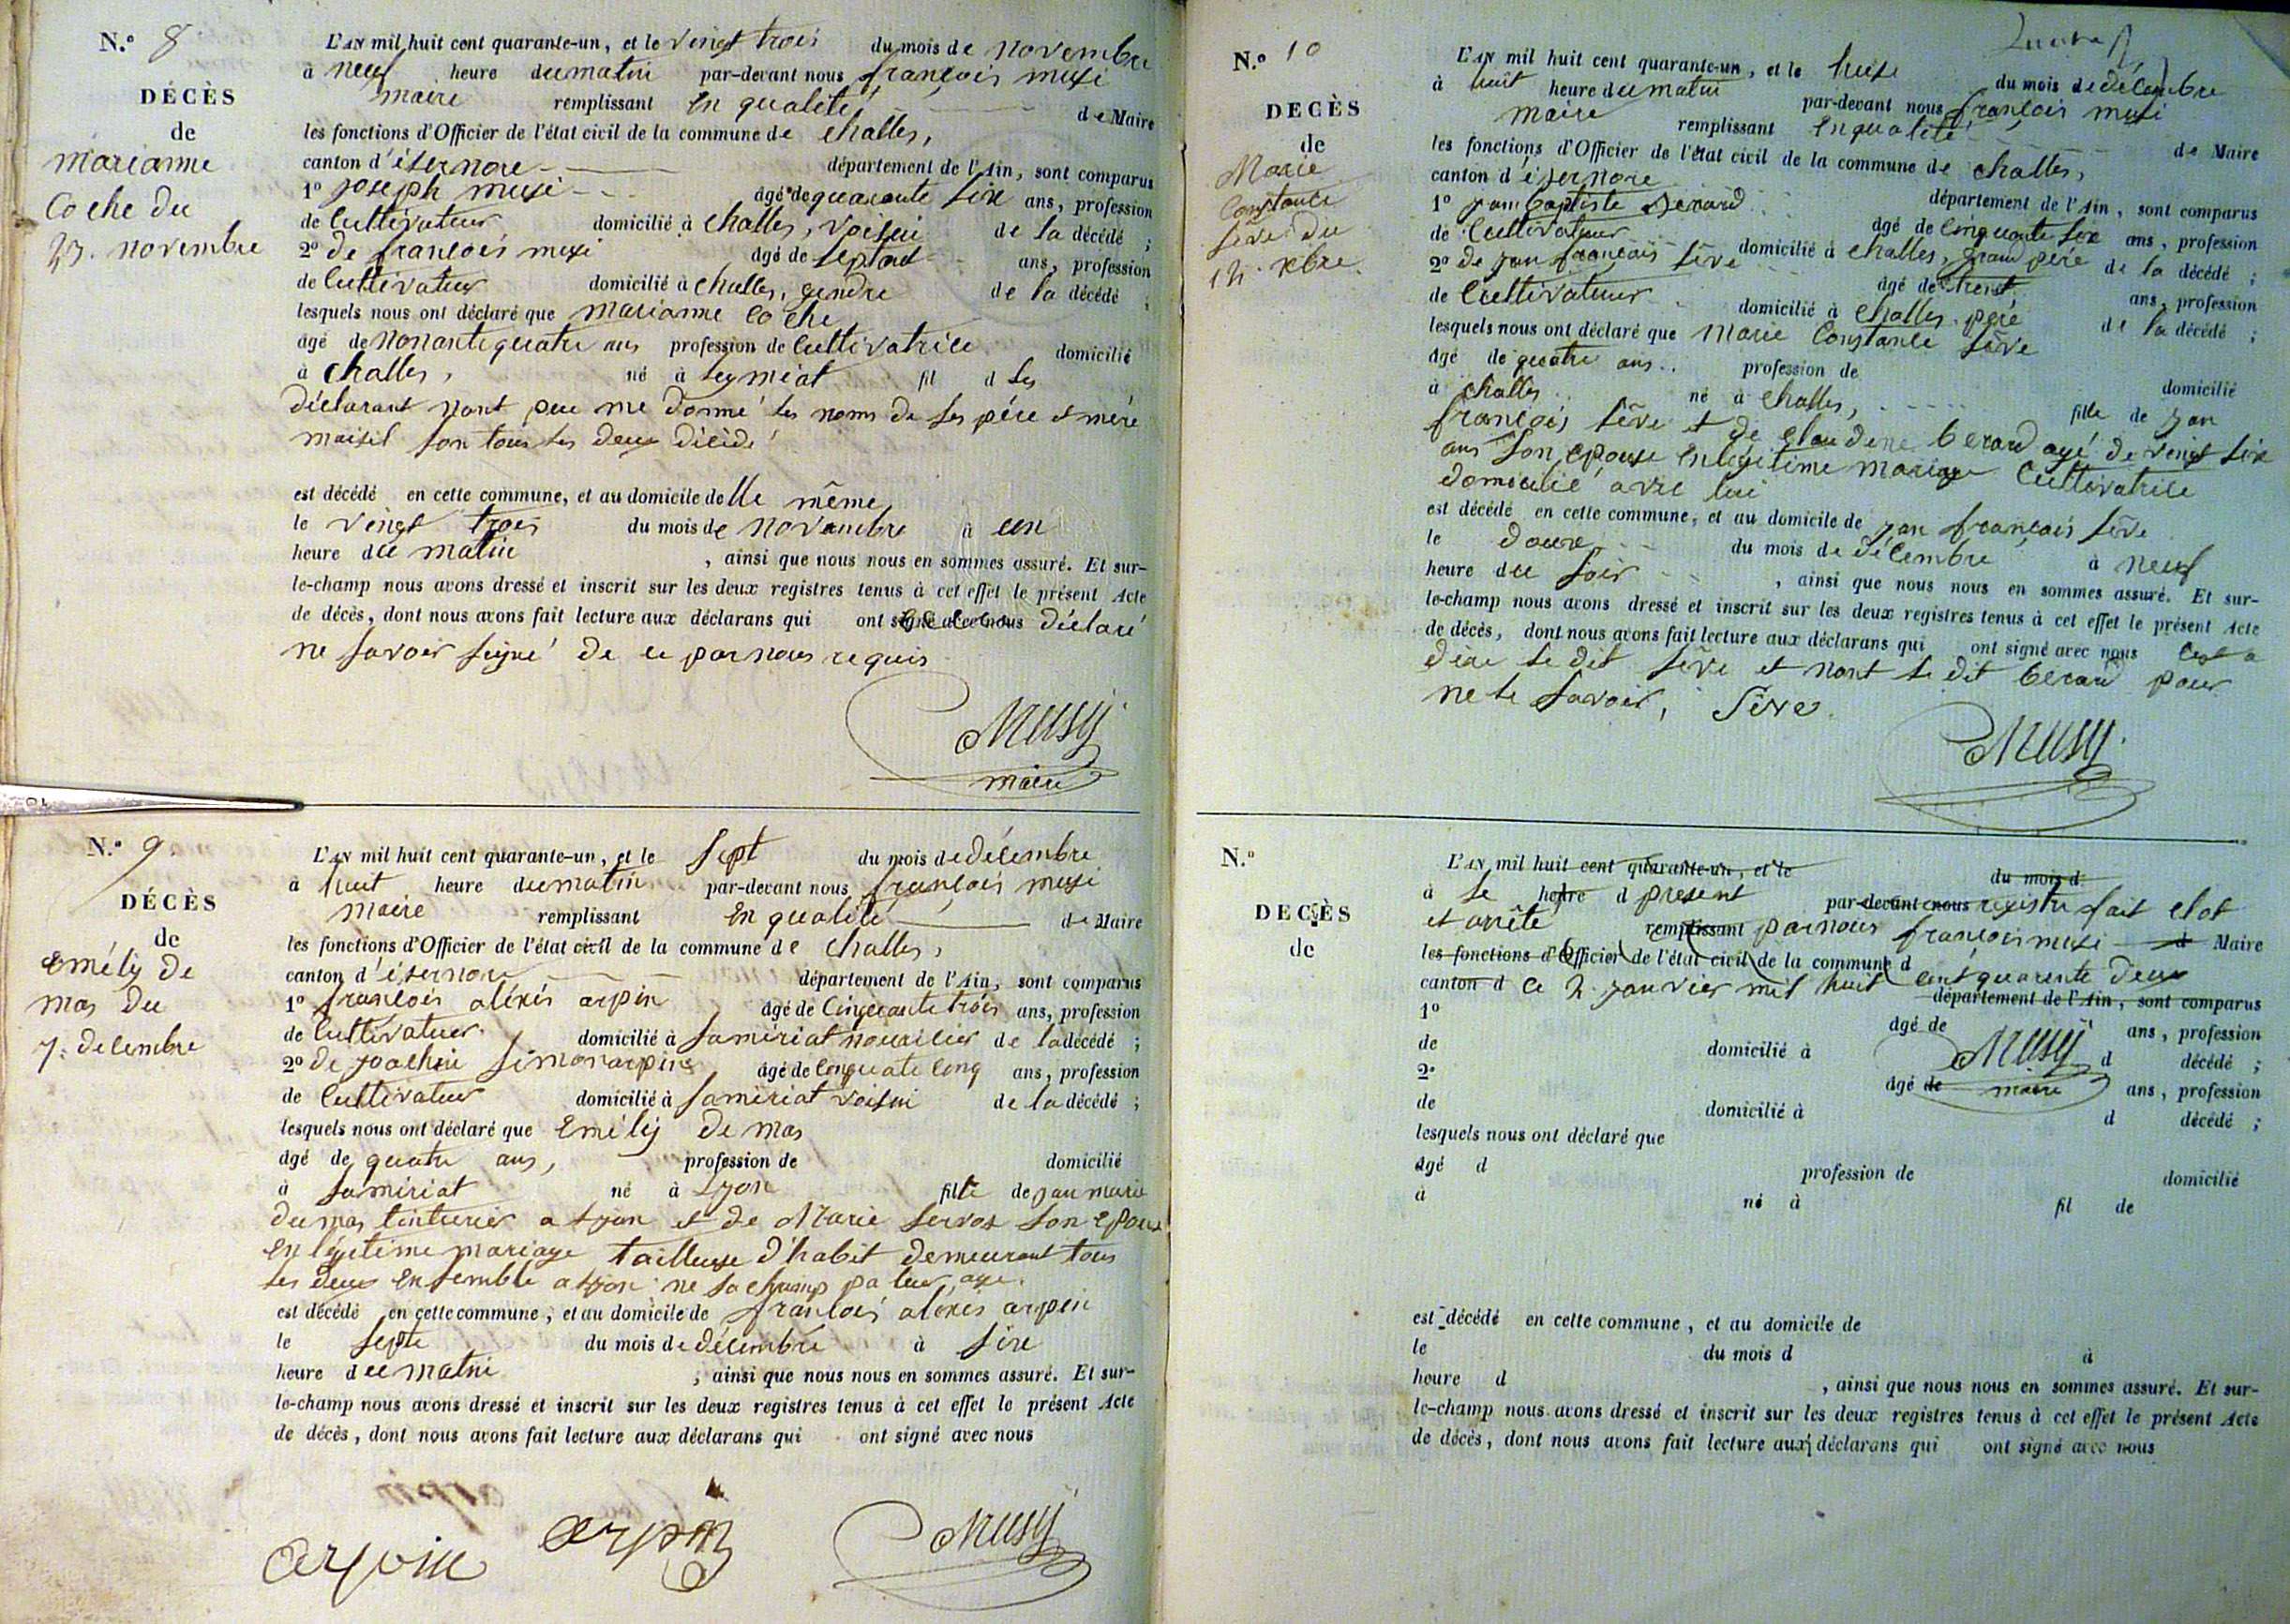 N.° 8
DÉCÈS
de
marianne
Coche du
23. novembre
L'AN mil huit cent quarante-un, et le vingt trois du mois de novembre
à neuf heure du matin par-devant nous françois musi
maire remplissant en qualité de Maire
les fonctions d'Officier de l'état civil de la commune de challes,
canton d'isernore département de l'Ain, sont comparus
1° joseph musi âgé de quarante six ans, profession
de Cultivateur domicilié à challes, voisin de la décédé ;
2° de françois musi âgé de ans, profession
de Cultivateur domicilié à challes, gendre de la décédé ;
lesquels nous ont déclaré que marianne Coche
âgé de nonantequatre ans profession de Cultivatrice domicilié
à challes, né à leymiat fil d les
déclarant nont peu me donné les noms de ses pére et mére
maisil son tous les deux décédé
est décédé en cette commune, et au domicile de lle même
le vingt trois du mois de novembre à un
heure du matin , ainsi que nous nous en sommes assuré. Et sur-
le-champ nous avons dressé et inscrit sur les deux registres tenus à cet effet le présent Acte
de décès, dont nous avons fait lecture aux déclarans qui ont signé avec nous déclaré
ne savoir signé de ce par nous requis
Musy
maire
N.° 9
DÉCÈS
de
Emély de
mas du
7. decembre
L'AN mil huit cent quarante-un, et le sept du mois de décembre
à huit heure du matin par-devant nous françois musi
maire remplissant en qualité de Maire
les fonctions d'Officier de l'état civil de la commune de challes,
canton d'isernore département de l'Ain, sont comparus
1° francois aléxis arpin âgé de Cinquante trois ans, profession
de Cultivateur domicilié à samiriat nouricier de la décédé ;
2° de joachin simon arpin âgé de cinquate cinq ans, profession
de Cultivateur domicilié à samiriat voisin de la décédé ;
lesquels nous ont déclaré que Emély de mas
âgé de quatre ans, profession de domicilié
à samiriat né à Lyon fille de jan marie
dumas tinturier a Lyon et de Marie servos son epous
en légetime mariage tailleuse d'habit demeurant tous
les deux ensemble a Lyon ne sachamp pa leur age.
est décédé en cette commune, et au domicile de francois aléxis arpin
le septe du mois de décembre à sixe
heure du matin ; ainsi que nous nous en sommes assuré. Et sur-
le-champ nous avons dressé et inscrit sur les deux registres tenus à cet effet le présent Acte
de décès, dont nous avons fait lecture aux déclarans qui ont signé avec nous
arpin arpin Musy
N.° 10
DECÈS
de
Marie
Constance
sève du
12. xbre.
L'AN mil huit cent quarante-un, et le du mois de décembre
à huit heure du matin par-devant nous françois musi
maire remplissant en qualité de Maire
les fonctions d'Officier de l'état civil de la commune de challes,
canton d'isernore département de l'Ain, sont comparus
1° jam baptiste Berard âgé de Cinquante six ans, profession
de Cultivateur domicilié à challes, grand pére de la décédé ;
2° de jan françois sève âgé de trent ans, profession
de Cultivateur domicilié à challes. pére de la décédé ;
lesquels nous ont déclaré que Marie Constance sève
âgé de quatre ans.. profession de domicilié
à challes né à challes, fille de jan
françois sève et de claudene berard agé de vingt six
ans son epouse en légetime mariage Cultivatrice
domicilié avec lui
est décédé en cette commune, et au domicile de jan françois sève
le douze du mois de décembre à neuf
heure du soir , ainsi que nous nous en sommes assuré. Et sur-
le-champ nous avons dressé et inscrit sur les deux registres tenus à cet effet le présent Acte
de décès, dont nous avons fait lecture aux déclarans qui ont signé avec nous Cest a
dire le dit sève et nont le dit berard pour
ne le savoir, Sève
Musy
N.°
DECÈS
de
L'AN mil huit cent quarante-un, et le du mois d
à le heure d present par-devant nous registre fait clot
et arrêté remplissant par nous françois musi d Maire
les fonctions d'Officier de l'état civil de la commune d
canton d ce 2 janvier mil huit cent quarente deux
département de l'Ain, sont comparus
1° âgé de ans, profession
de domicilié à Musy d décédé ;
2° âgé de maire ans, profession
de domicilié à d décédé ;
lesquels nous ont déclaré que
âgé d profession de domicilié
à né à fil de
est décédé en cette commune, et au domicile de
le du mois d à
heure d , ainsi que nous nous en sommes assuré. Et sur-
le-champ nous avons dressé et inscrit sur les deux registres tenus à cet effet le présent Acte
de décès, dont nous avons fait lecture aux déclarans qui ont signé avec nous